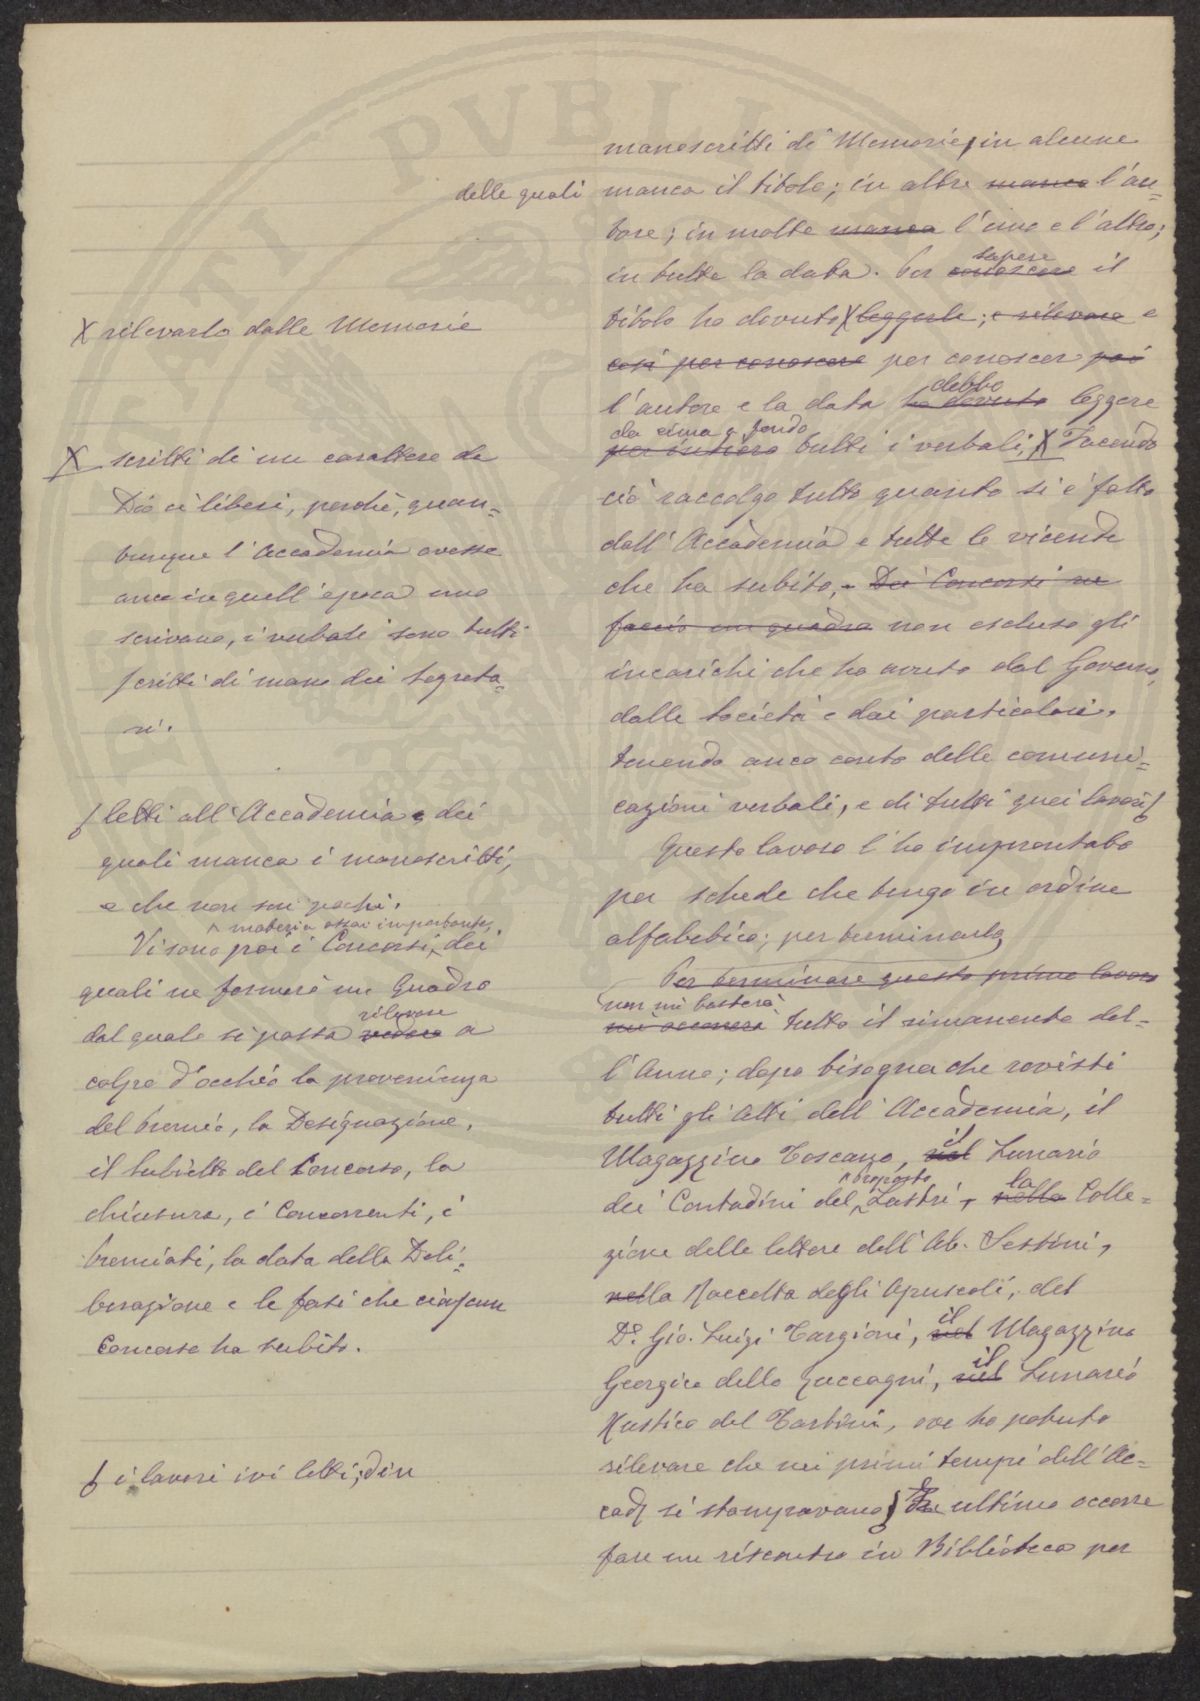 manoscritti di Memorie, in alcune
delle quali manca il titolo; in altre manca l'au=
tore; in molte manca l'uno e l'altro;
in tutte la data. Per conoscere sapere il
titolo ho dovuto X leggerle; e rilevare e
così per conoscere per conoscer poi
l'autore e la data ho dovuto debbo leggere
per intiero da cima a fondo tutti i verbali; X Facendo
ciò raccolgo tutto quanto si è fatto
dall'Accademia e tutte le vicende
che ha subito, - Dei Concorsi ne
faccio un quadro non escluso gli
incarichi che ha avuto dal Governo,
dalle Società e dai particolari,
tenendo anco conto delle comuni=
cazioni verbali, e di tutti quei lavori ſ
Questo lavoro l'ho improntato
per schede che tengo in ordine
alfabetico; per terminarlo
Per terminare questo primo lavoro
mi occorerà non mi basterà tutto il rimanente del=
l'Anno; dopo bisogna che rovisti
tutti gli Atti dell'Accademia, il
Magazzino Toscano, nel il Lunario
dei Contadini del proposto Lastri, nella la Colle=
zione delle lettere dell'Ab. Sestini,
nella Raccolta degli Opuscoli, del
Dr. Gio. Luigi Targioni, nel il Magazzino
Georgico dello Zuccagni, nel il Lunario
Rustico del Tartini, ove ho potuto
rilevare che nei primi tempi dell'Ac=
cad. si stampavano ſ In ultimo occorre
fare un riscontro in Biblioteca per
X rilevarlo dalle Memorie
X scritti di un carattere da
Dio ci liberi, perchè, quan=
tunque l'Accademia avesse
anco in quell'epoca uno
scrivano, i verbali sono tutti
scritti di mano dei Segreta=
ri.
ſ letti all'Accademia e dei
quali manca i manoscritti,
e che non son pochi.
Vi sono poi i Concorsi, materia assai importante, dei
quali ne formerò un Quadro
dal quale si possa vedere rilevare a
colpo d'occhio la provenienza
del Premio, la Designazione,
il Subietto del Concorso, la
chiusura, i Concorrenti, i
Premiati, la data della Deli=
berazione e le fasi che ciascun
Concorso ha subito.
ſ i lavori ivi letti; d in